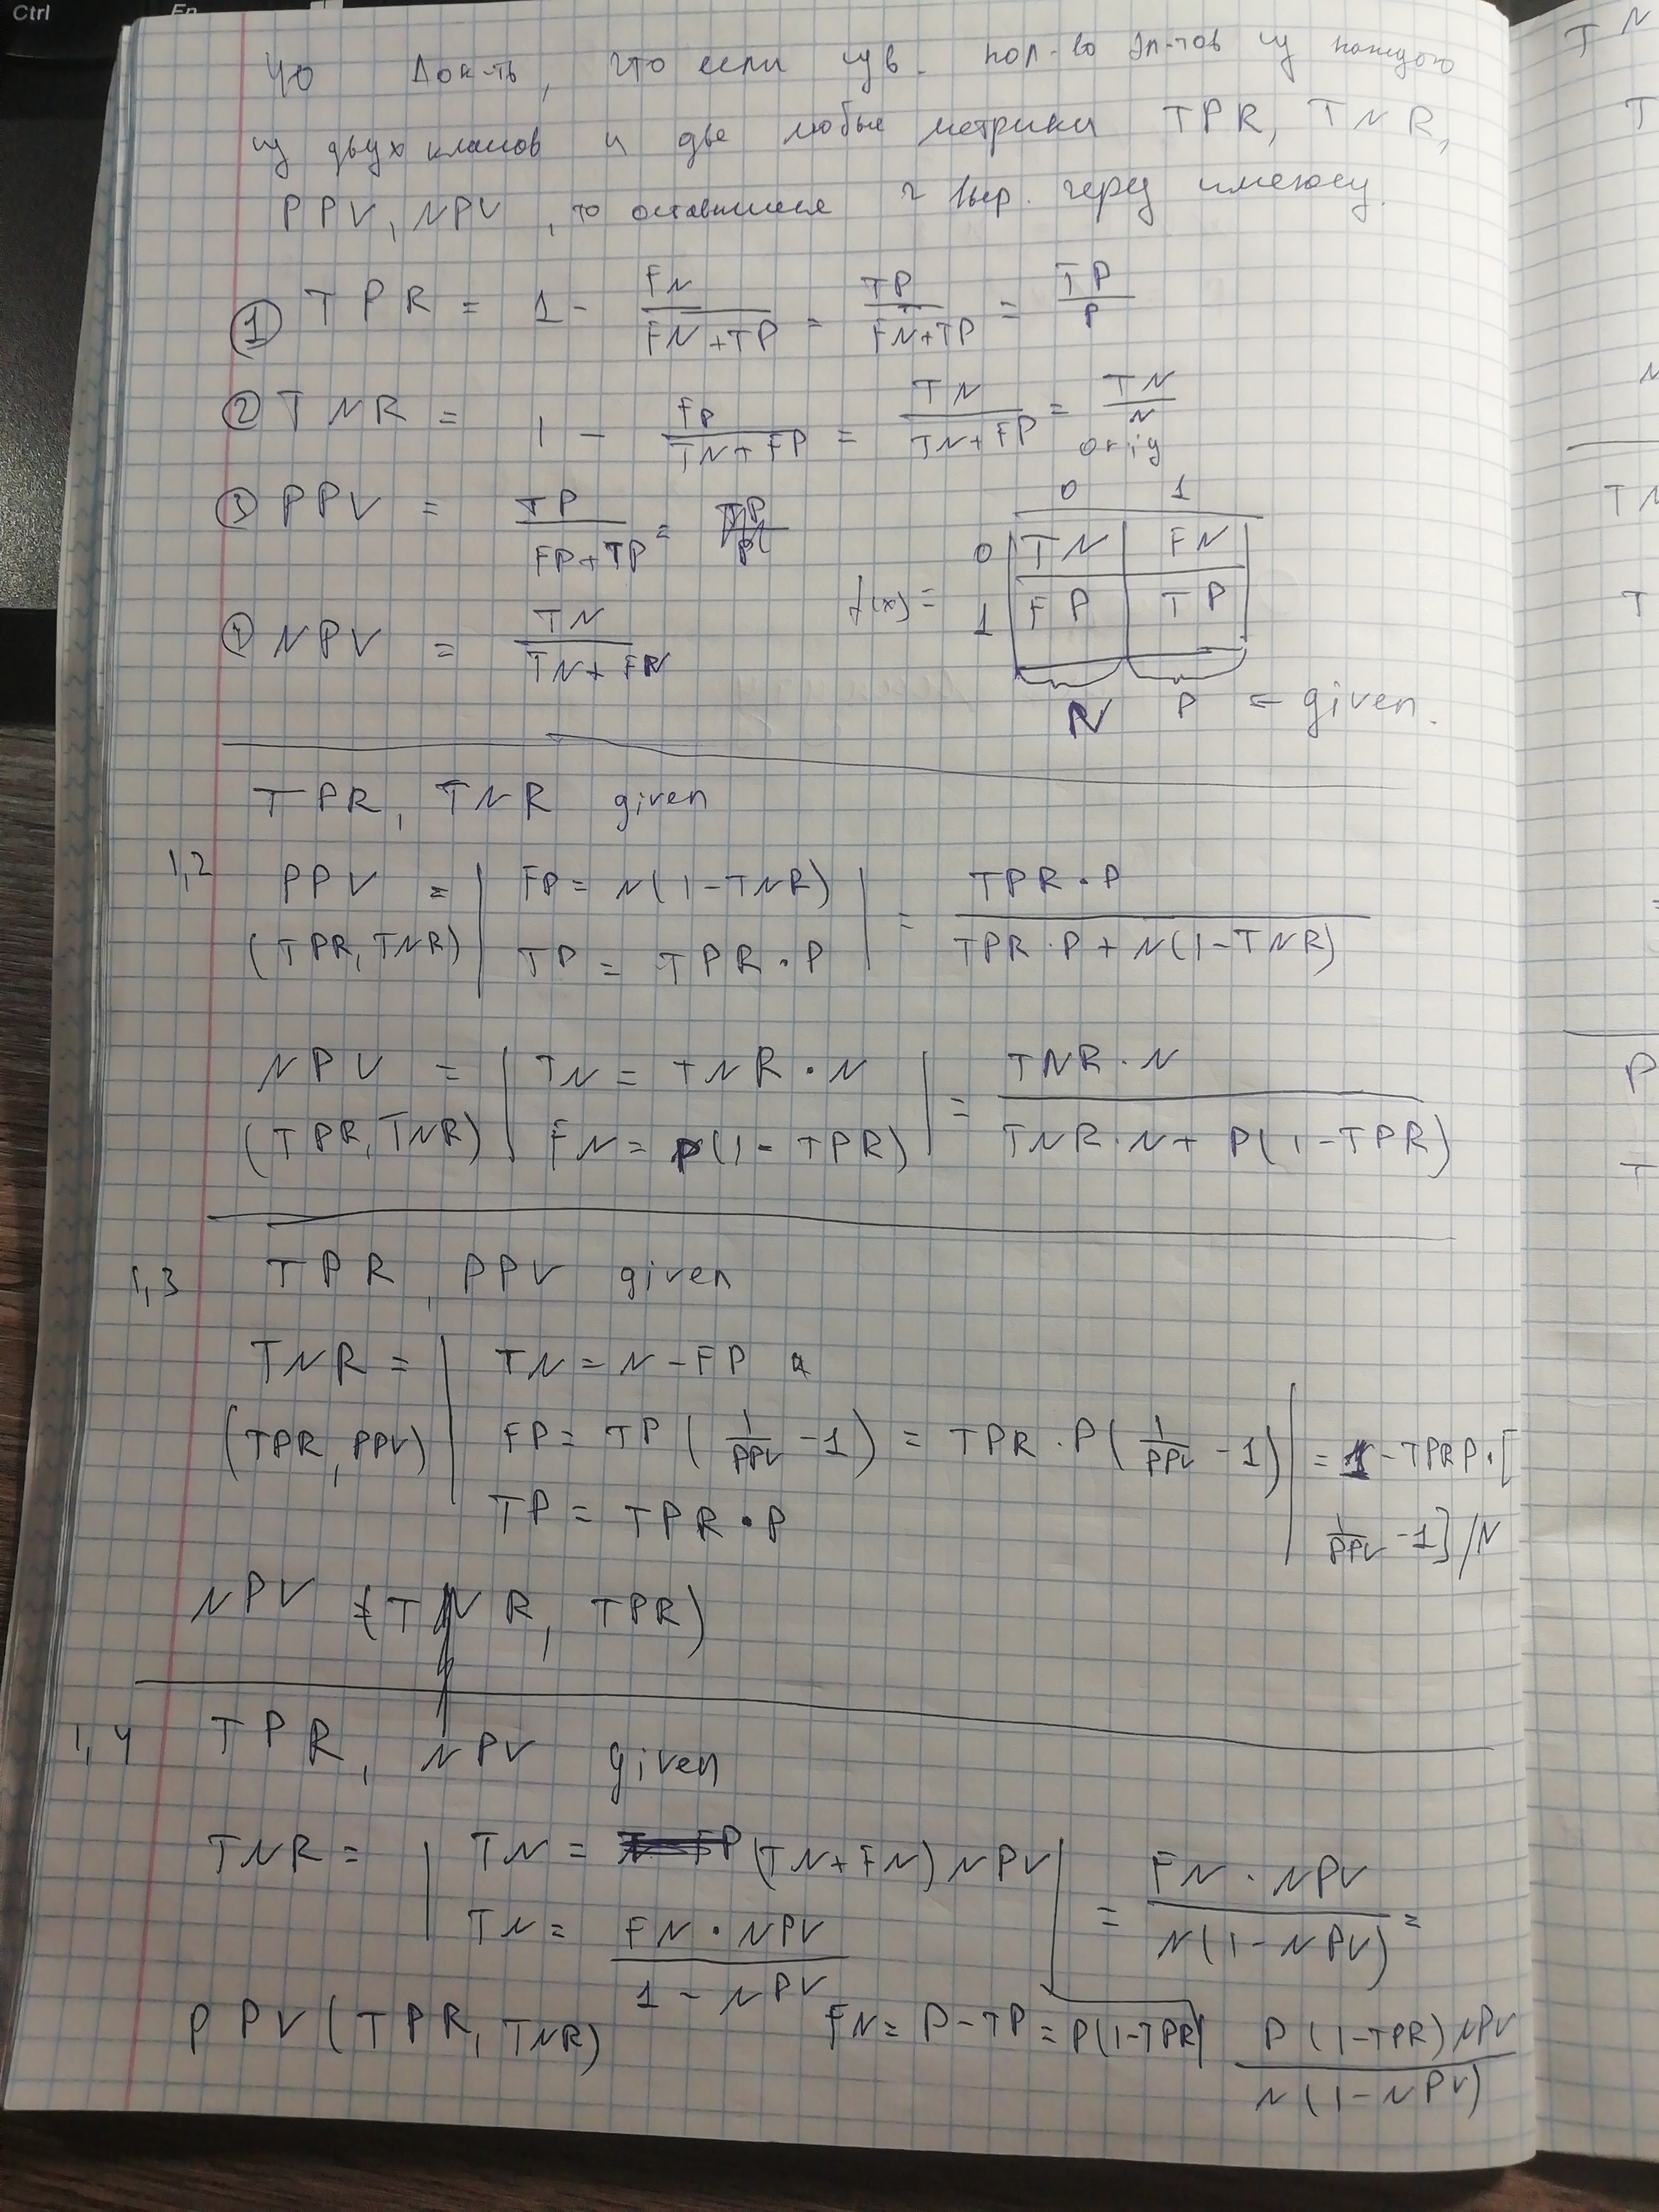 Ctrl
Fn
40 Док-ть, что если изв. кол-во эл-тов из каждого
из двух классов и две любые метрики TPR, TNR,
PPV, NPV, то оставшиеся 2 выр. через
① TPR = 1 - FN/(FN+TP) = TP/(FN+TP) = TP/P
② TNR = 1 - FP/(TN+FP) = TN/(TN+FP) = TN/N
orig
③ PPV = TP/(FP+TP) =
0 1
0 TN FN
f(x) = 1 FP TP
④ NPV = TN/(TN+FN)
N P = given.
TPR, TNR given
1,2 PPV = | FP = N(1-TNR) | = TPR·P/(TPR·P + N(1-TNR))
(TPR, TNR) | TP = TPR·P |
NPV = | TN = TNR·N | = TNR·N/(TNR·N + P(1-TPR))
(TPR, TNR) | FN = P(1-TPR) |
1,3 TPR, PPV given
TNR = | TN = N - FP
(TPR, PPV) | FP = TP(1/PPV - 1) = TPR·P(1/PPV - 1) | = 1 - TPR P·[
TP = TPR·P | 1/PPV - 1]/N
NPV (TNR, TPR)
1,4 TPR, NPV given
TNR = | TN = (TN+FN)NPV | = FN·NPV/(N(1-NPV)) =
TN = FN·NPV/(1-NPV)
PPV(TPR, TNR) FN = P-TP = P(1-TPR) | P(1-TPR)NPV/(N(1-NPV))
TN
T
N
TN
T
P
T